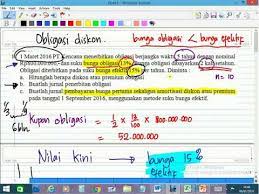 Obligasi diskon.
bunga obligasi < bunga efektif
1 Maret 2016 PT Kencana menerbitkan obligasi berjangka waktu 5 tahun dengan nominal
Rp800.000.000,- dan suku bunga obligasi 13%. obligasi dibayarkan 2 kali setahun.
Obligasi diterbitkan pada suku bunga efektif 15% tahun. Diminta :
a. Hitunglah berapa obligasi
b. Buatlah jurnal penerbitan obligasi
c. Buatlah jurnal pembayaran bunga pertama sekaligus amortisasi diskon atau premium
pada tanggal 1 September 2016, menggunakan metode suku bunga efektif.
n = 10
6 bln
Kupon obligasi = 1/2 x 13/100 x 800.000.000
= 52.000.000
Nilai kini =>
bunga 15%
efektif